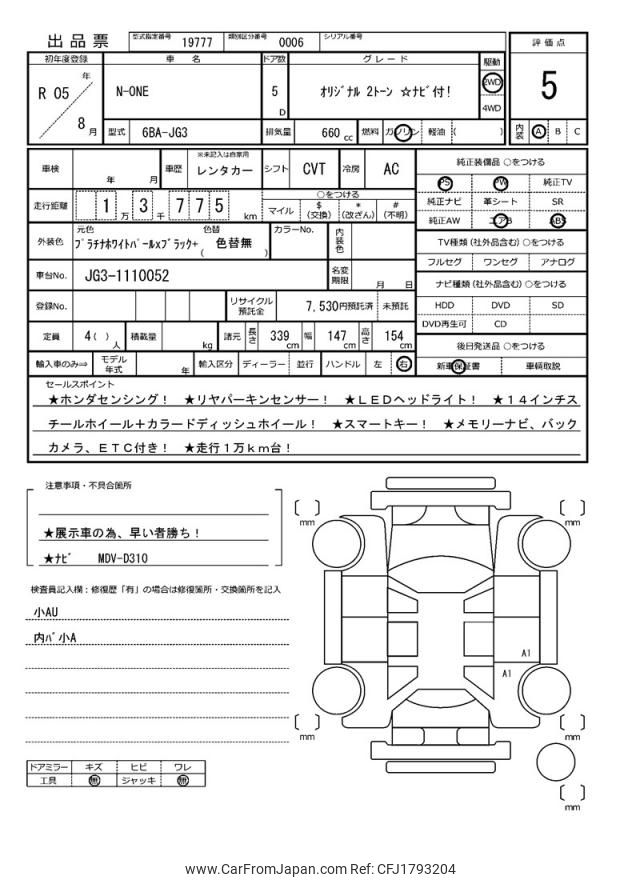 出品票 型式指定番号 19777 類別区分番号 0006 シリアル番号
評価点
5
内装 A B C
初年度登録 車名 ドア数 グレード 駆動
R 05 年 8 月 N-ONE 5 D オリジナル 2トーン ☆ナビ付! 2WD
4WD
型式 6BA-JG3 排気量 660 cc 燃料 ガソリン 軽油 ( )
車検 年 月 車歴 ※未記入は自家用 レンタカー シフト CVT 冷房 AC
走行距離 1 万 3 千 7 7 5 km ○をつける
マイル $ (交換) * (改ざん) # (不明)
外装色 元色 色替
プラチナホワイトパールxブラック+ ( 色替無 ) カラーNo. 内装色
車台No. JG3-1110052 名変期限 月 日
登録No. リサイクル預託金 7,530円預託済 未預託
定員 4( )人 積載量 kg 諸元 長さ 339 cm 幅 147 cm 高さ 154 cm
輸入車のみ⇒ モデル年式 年 輸入区分 ディーラー 並行 ハンドル 左 右
純正装備品 ○をつける
PS PW 純正TV
純正ナビ 革シート SR
純正AW エアB ABS
TV種類(社外品含む)○をつける
フルセグ ワンセグ アナログ
ナビ種類(社外品含む)○をつける
HDD DVD SD
DVD再生可 CD
後日発送品 ○をつける
新車保証書 車輌取説
セールスポイント
★ホンダセンシング! ★リヤパーキンセンサー! ★LEDヘッドライト! ★14インチス
チールホイール+カラードディッシュホイール! ★スマートキー! ★メモリーナビ、バック
カメラ、ETC付き! ★走行1万km台!
注意事項・不具合箇所
★展示車の為、早い者勝ち!
★ナビ MDV-D310
検査員記入欄:修復歴「有」の場合は修復箇所・交換箇所を記入
小AU
内バ小A
mm
mm
A1
A1
mm
mm
mm
ドアミラー キズ ヒビ ワレ
工具 無 ジャッキ 無
www.CarFromJapan.com Ref: CFJ1793204